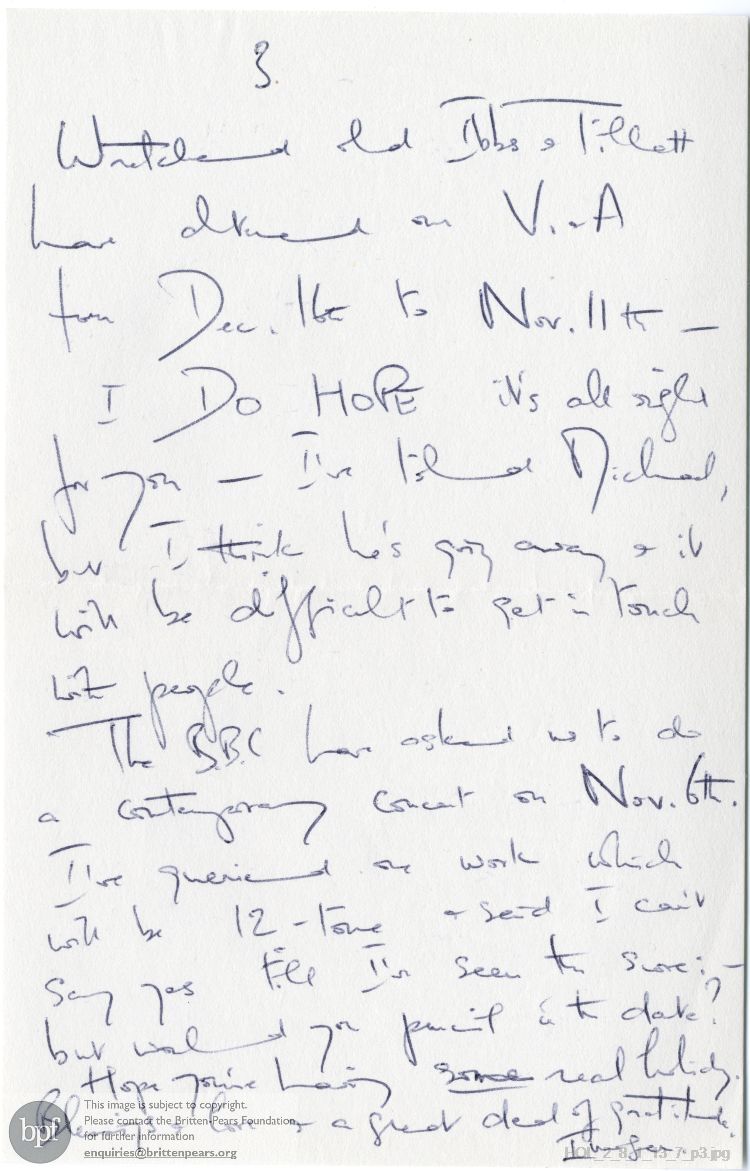 3.
Wretched old Ibbs & Tillett
have altered our V. & A
from Dec. 16th to Nov. 11th —
I DO HOPE it's all right
for you — I've told Michael,
but I think he's going away & it
will be difficult to get in touch
with people.
The B.B.C have asked us to do
a contemporary concert on Nov. 6th.
I've queried one work which
will be 12-tone & said I can't
say yes till I've seen the score: -
but would you pencil in the date?
Hope you're having some real holiday.
Blessings & love & a great deal of gratitude.
Imogen.
bpf
This image is subject to copyright.
Please contact the Britten-Pears Foundation
for further information
enquiries@brittenpears.org